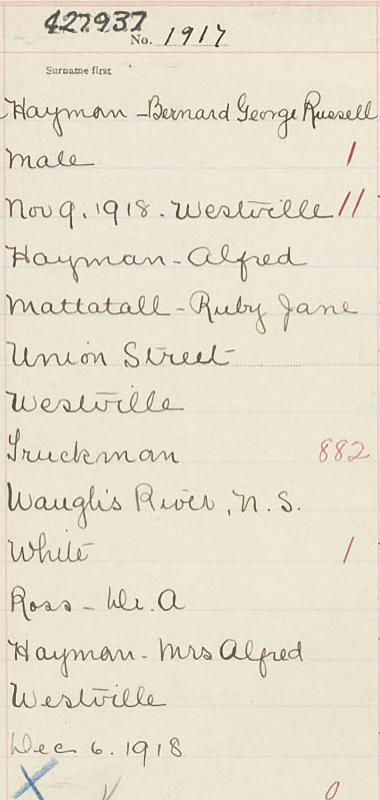 427937
No. 1917
Surname first
Hayman - Bernard George Russell
Male 1
Nov 9, 1918. Westville 11
Hayman - Alfred
Mattatall - Ruby Jane
Union Street
Westville
Truckman 882
Waugh's River, N.S.
White 1
Ross - Dr. A
Hayman - Mrs Alfred
Westville
Dec 6. 1918
X √ 0